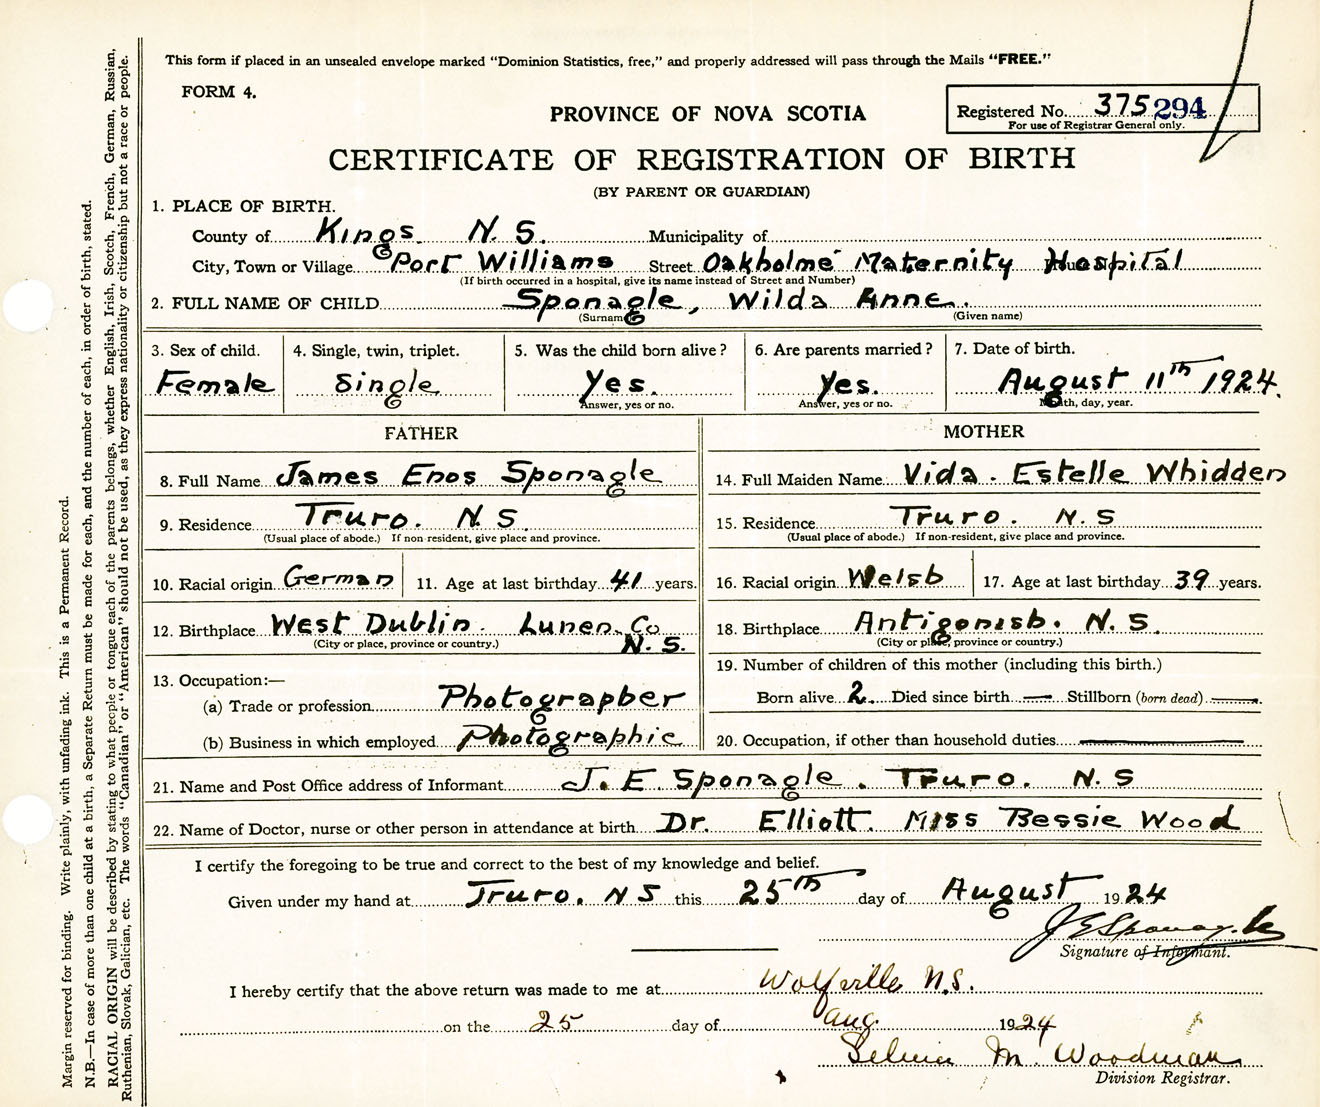 This form if placed in an unsealed envelope marked "Dominion Statistics, free," and properly addressed will pass through the Mails "FREE."
FORM 4.
PROVINCE OF NOVA SCOTIA
Registered No. 375 294
For use of Registrar General only.
CERTIFICATE OF REGISTRATION OF BIRTH
(BY PARENT OR GUARDIAN)
1. PLACE OF BIRTH.
County of Kings N. S. Municipality of
City, Town or Village Port Williams Street Oakholme Maternity Hospital
(If birth occurred in a hospital, give its name instead of Street and Number)
2. FULL NAME OF CHILD Sponagle, Wilda Anne.
(Surname) (Given name)
3. Sex of child. 4. Single, twin, triplet. 5. Was the child born alive? 6. Are parents married? 7. Date of birth.
Female Single Yes. Yes. August 11th 1924.
Answer, yes or no. Answer, yes or no. Month, day, year.
FATHER MOTHER
8. Full Name James Enos Sponagle 14. Full Maiden Name Vida. Estelle Whidden
9. Residence Truro. N. S. 15. Residence Truro. N. S
(Usual place of abode.) If non-resident, give place and province. (Usual place of abode.) If non-resident, give place and province.
10. Racial origin German 11. Age at last birthday 41 years. 16. Racial origin Welsh 17. Age at last birthday 39 years.
12. Birthplace West Dublin. Lunen. Co N. S. 18. Birthplace Antigonish. N. S.
(City or place, province or country.) (City or place, province or country.)
13. Occupation:— 19. Number of children of this mother (including this birth.)
(a) Trade or profession Photographer Born alive 2. Died since birth — Stillborn (born dead) —
(b) Business in which employed Photographic 20. Occupation, if other than household duties —
21. Name and Post Office address of Informant J. E. Sponagle. Truro. N. S
22. Name of Doctor, nurse or other person in attendance at birth Dr. Elliott. Miss Bessie Wood
I certify the foregoing to be true and correct to the best of my knowledge and belief.
Given under my hand at Truro. N S this 25th day of August 1924
J E Sponagle
Signature of Informant.
I hereby certify that the above return was made to me at Wolfville N.S.
on the 25 day of Aug. 1924
M. Woodman
Division Registrar.
Margin reserved for binding. Write plainly, with unfading ink. This is a Permanent Record.
N.B.—In case of more than one child at a birth, a Separate Return must be made for each, and the number of each, in order of birth, stated.
RACIAL ORIGIN will be described by stating to what people or tongue each of the parents belongs, whether English, Irish, Scotch, French, German, Russian,
Ruthenian, Slovak, Galician, etc. The words "Canadian" or "American" should not be used, as they express nationality or citizenship but not a race or people.